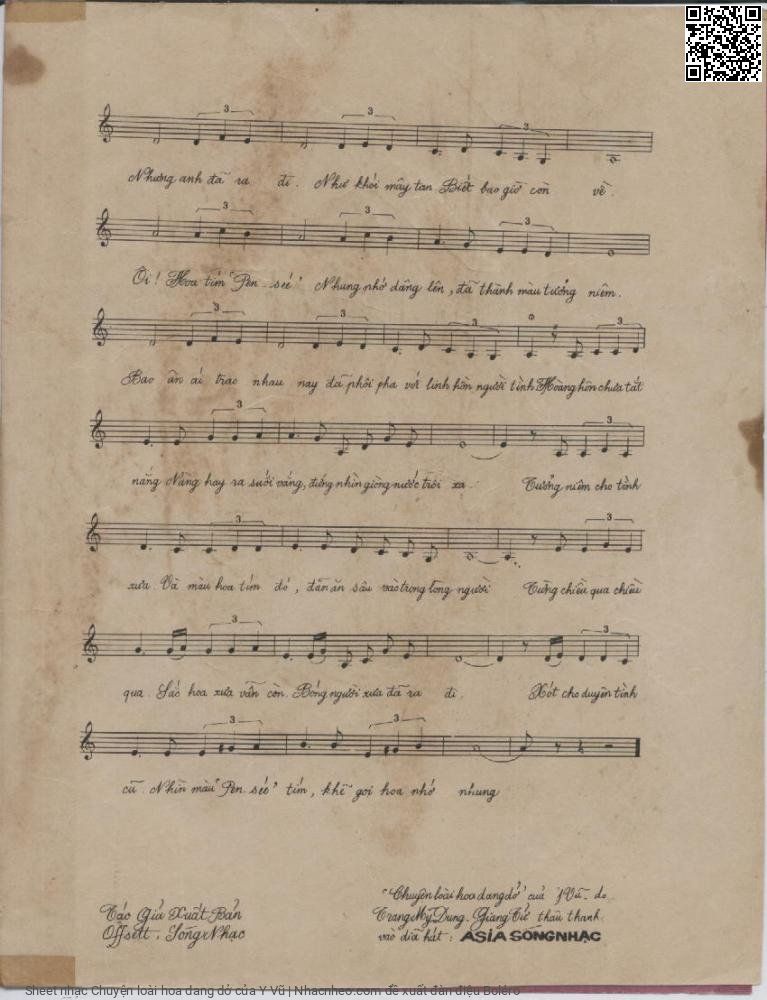 Nhưng anh đã ra đi. Như khói mây tan Biết bao giờ còn về.
Ôi! Hoa tím "Pen-seé" Nhung nhớ dâng lên, đã thành màu tưởng niệm.
Bao ân ái trao nhau nay đã phôi pha với linh hồn người tình Hoàng hôn chưa tắt
nắng Nàng hay ra suối vắng, đứng nhìn giòng nước trôi xa. Tưởng niệm cho tình
xưa. Và màu hoa tím đó, đã ăn sâu vào trong lòng người Từng chiều qua chiều
qua. Sắc hoa xưa vẫn còn. Bóng người xưa đã ra đi. Xót cho duyên tình
cũ. Nhìn màu "Pen-seé" tím, khẽ gọi hoa nhớ nhung
"Chuyện loài hoa dang dở" của Y Vũ - do
Tác Giả Xuất Bản
Trang Mỹ Dung - Giang Tử thâu thanh
Offsett : Sóng Nhạc
vào dĩa hát : ASIA SÓNGNHẠC
Sheet nhạc Chuyện loài hoa dang dở của Y Vũ | Nhacnheo.com đề xuất đàn điệu Boléro